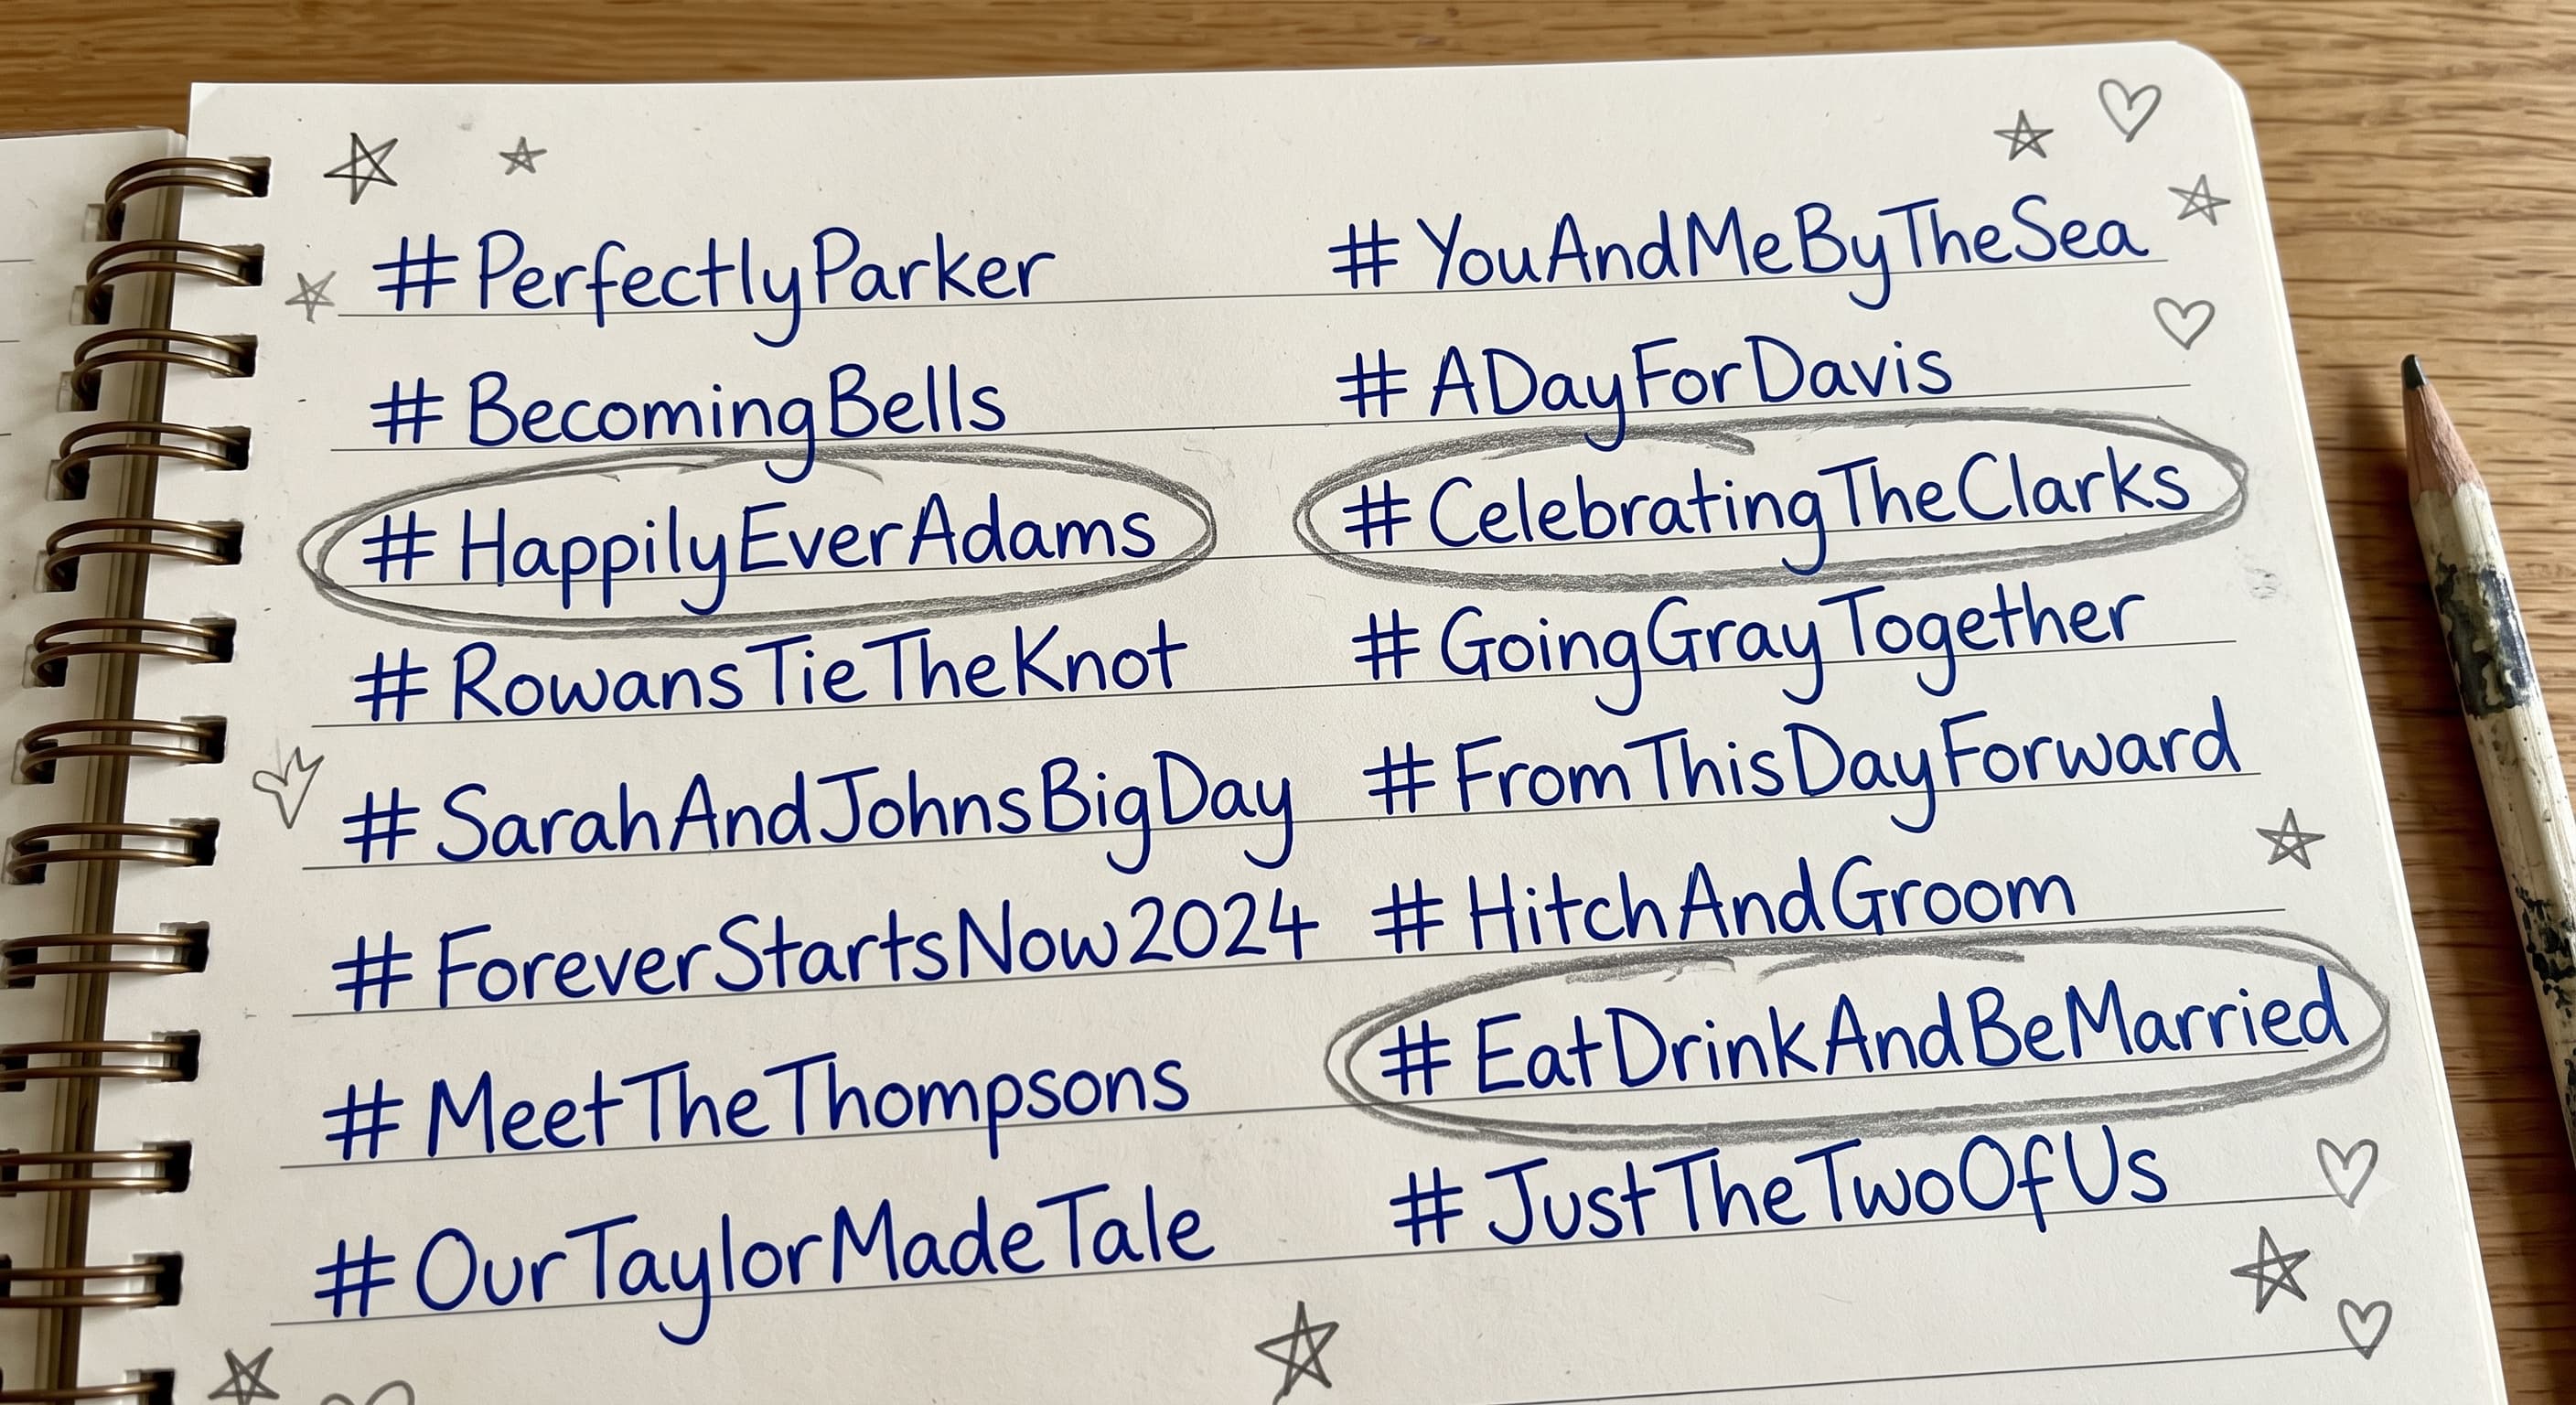 #PerfectlyParker
#BecomingBells
#HappilyEverAdams
#RowansTieTheKnot
#SarahAndJohnsBigDay
#ForeverStartsNow2024
#MeetTheThompsons
#OurTaylorMadeTale
#YouAndMeByTheSea
#ADayForDavis
#CelebratingTheClarks
#GoingGrayTogether
#FromThisDayForward
#HitchAndGroom
#EatDrinkAndBeMarried
#JustTheTwoOfUs